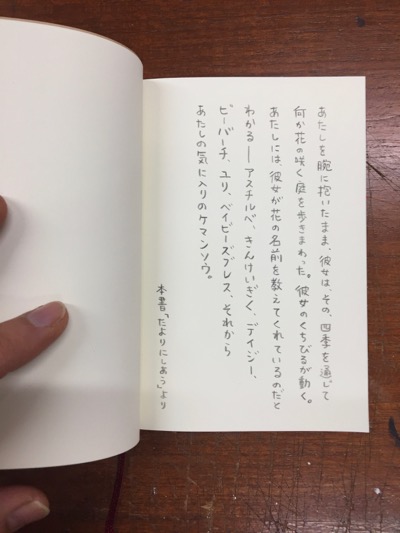 あたしを腕に抱いたまま、彼女は、その、四季を通じて
何か花の咲く庭を歩きまわった。彼女のくちびるが動く。
あたしには、彼女が花の名前を教えてくれているのだと
わかる——アスチルベ、きんけいぎく、デイジー、
ビーバーチ、ユリ、ベイビーズブレス、それから
あたしの気に入りのケマンソウ。
本書「たよりにしあう」より